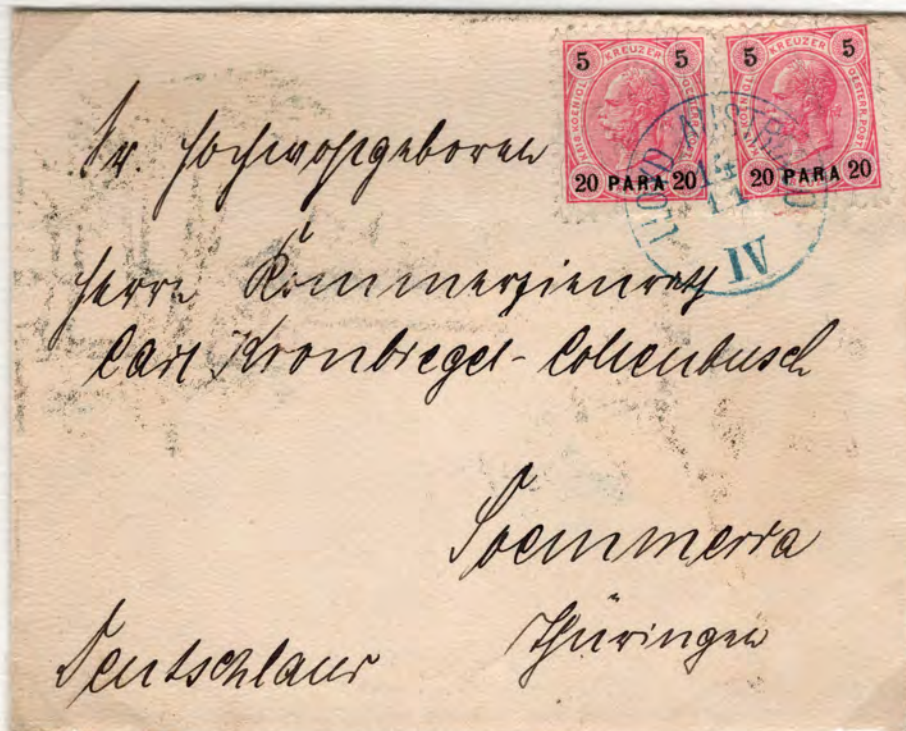 5 KREUZER 5
KAIS. KOENIGL. OESTERR. POST
20 PARA 20
5 KREUZER 5
KAIS. KOENIGL. OESTERR. POST
20 PARA 20
LLOYD AUSTRIACO
14
11
IV
Sr. Hochwohlgeboren
Herrn Kommerzienrath
Carl Kronbiegel-Collenbusch
Soemmerda
Thüringen
Deutschland